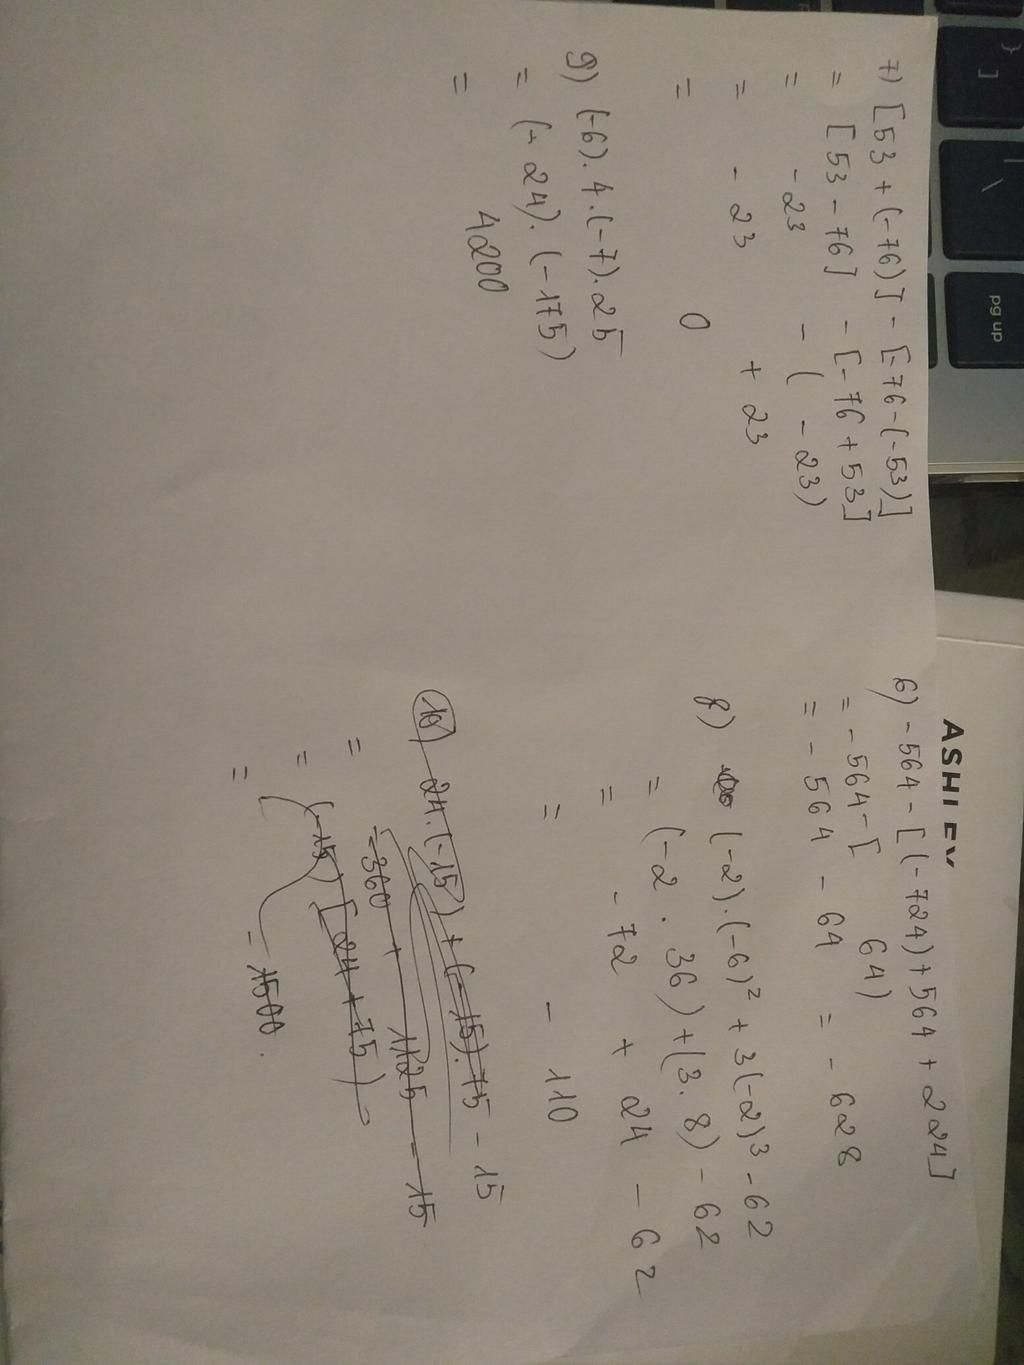 7) [53 + (-76)] - [-76-(-53)]
= [53 - 76] - [-76 + 53]
= -23 - ( - 23)
= - 23 + 23
= 0
9) (-6). 4. (-7). 25
= (- 24). (-175)
= 4200
6) - 564 - [(-724) + 564 + 224]
= - 564 - [ 64)
= - 564 - 64 = - 628
8) (-2). (-6)² + 3(-2)³ - 62
= (-2 . 36) + (3. 8) - 62
= - 72 + 24 - 62
= - 110
10) 24. (-15) + (-15). 75 - 15
= -360 + - 1125 - 15
= (-15) [24 + 75)
= - 1500.
ASHLEY
} ]
| \
pg up